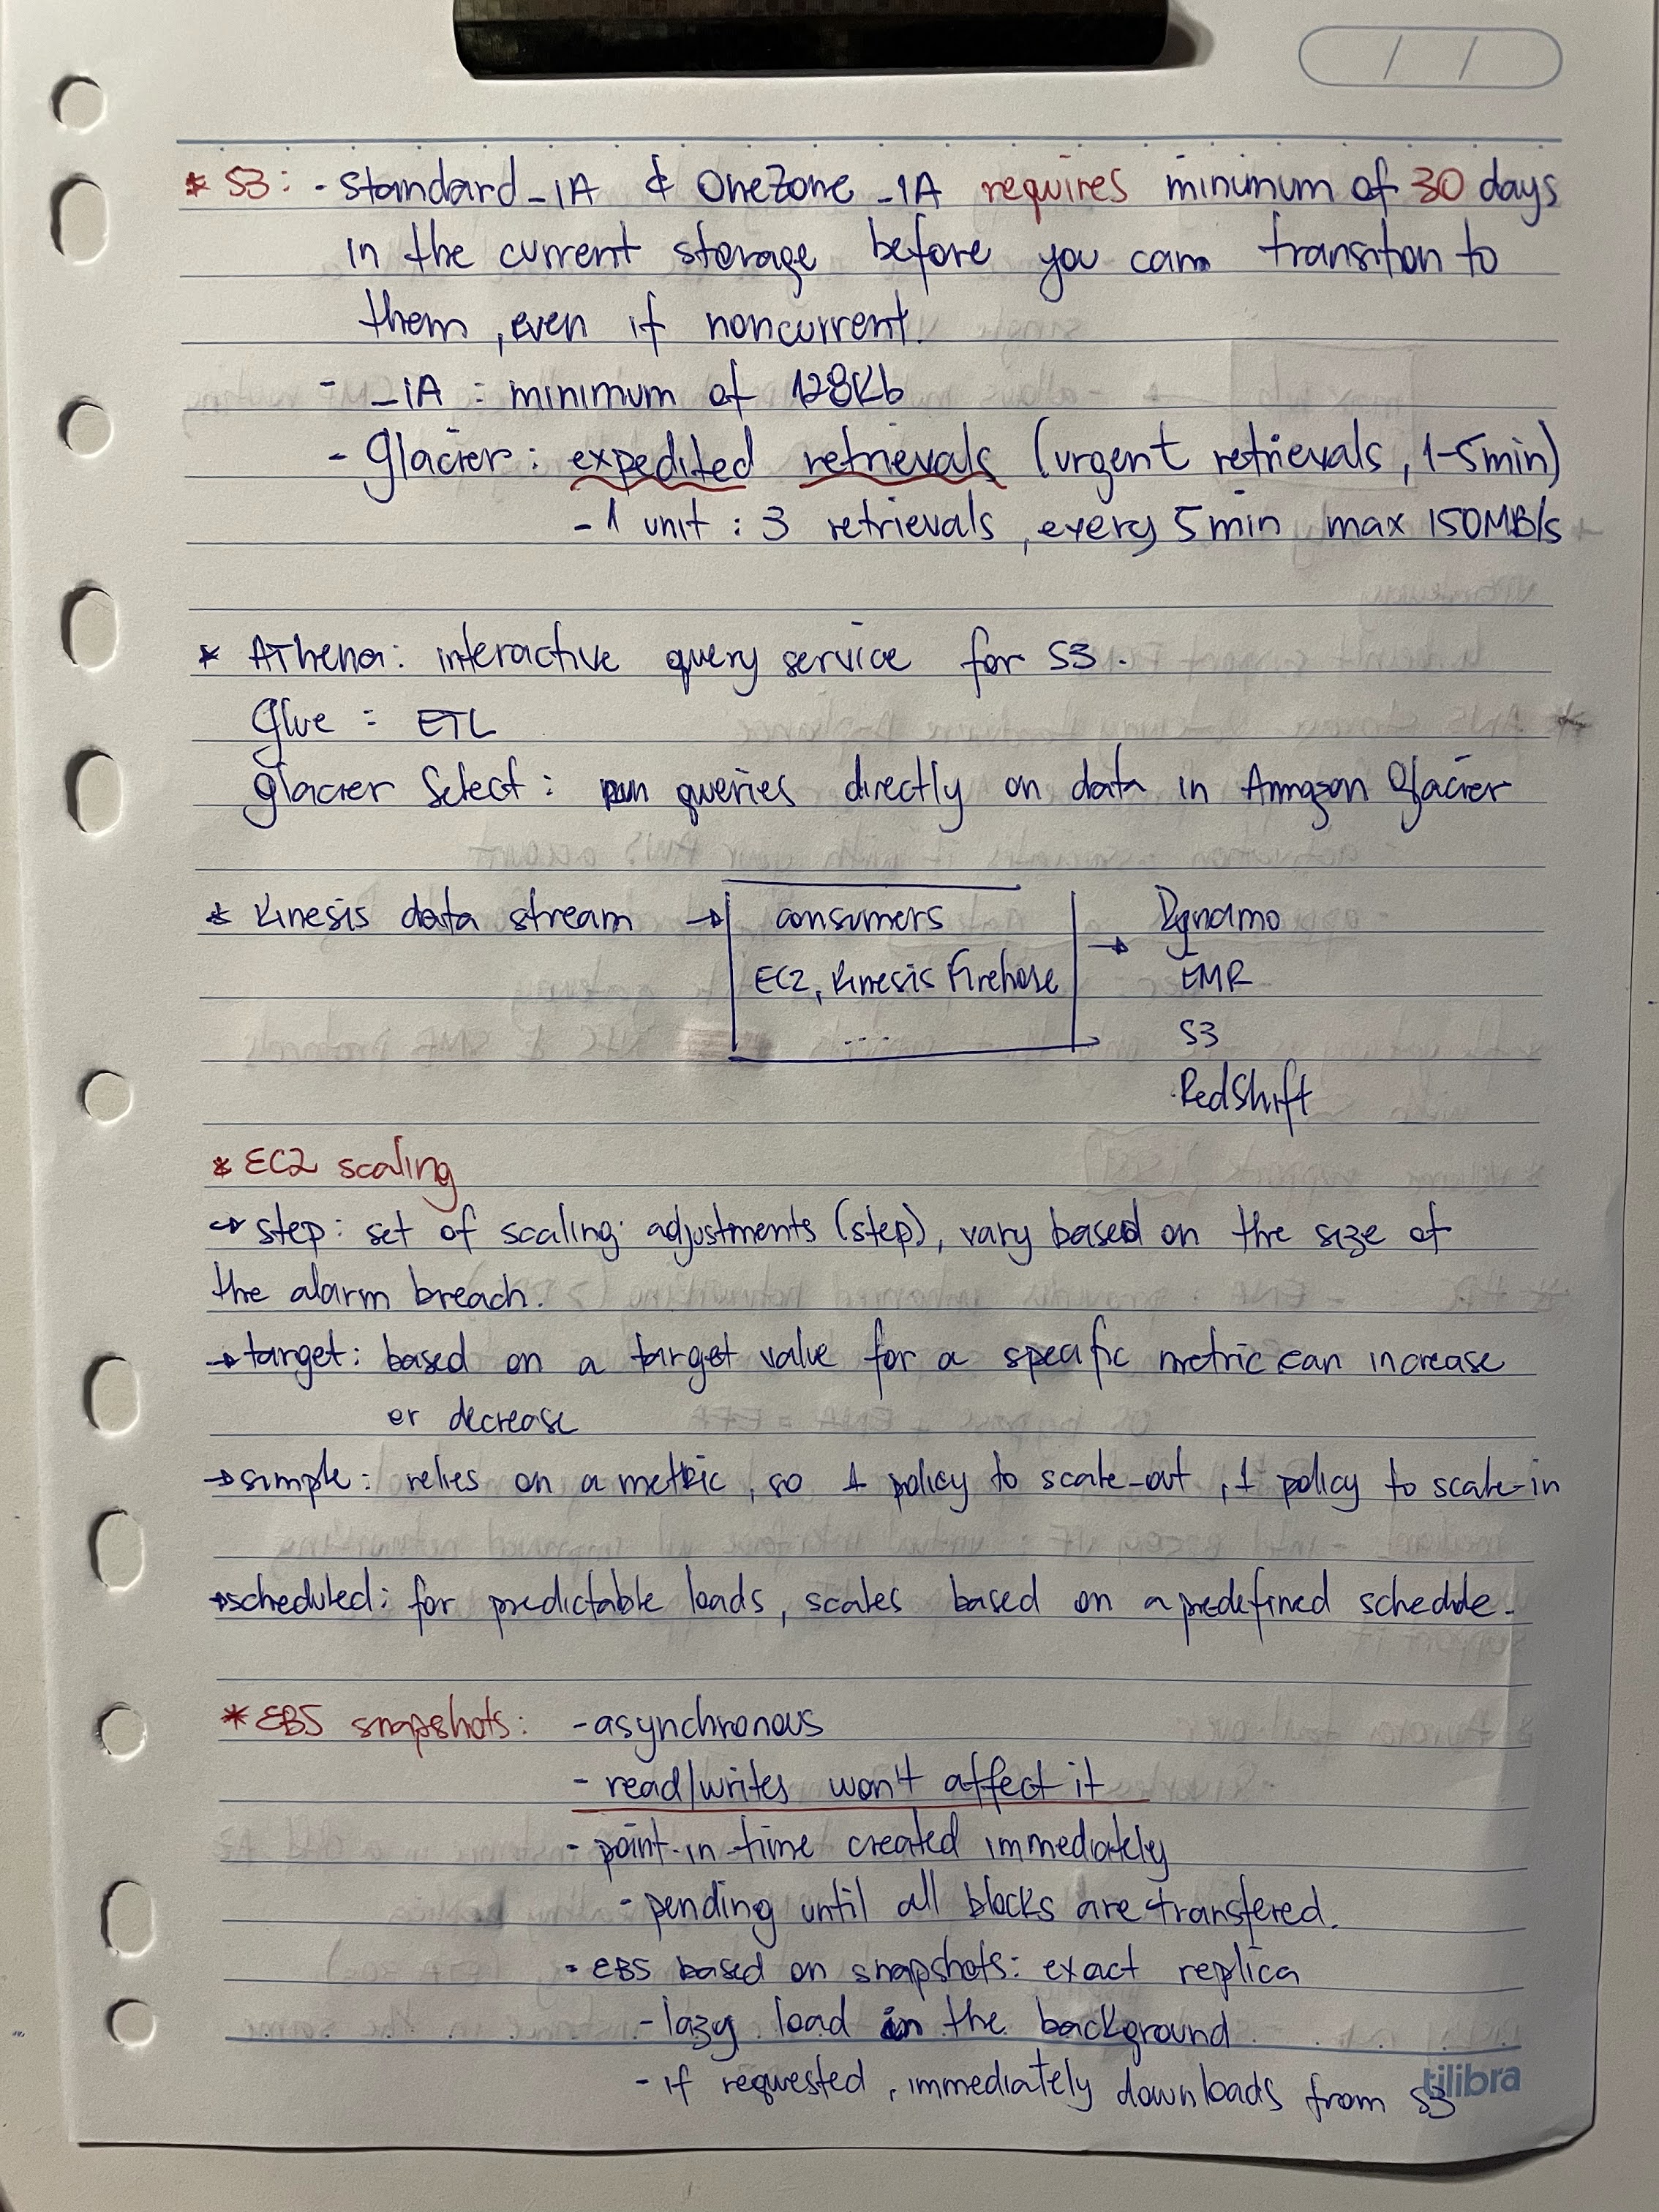 * S3: - Standard_IA & OneZone_IA requires minimum of 30 days
in the current storage before you can transition to
them, even if noncurrent.
- _IA : minimum of 128Kb
- Glacier: expedited retrievals (urgent retrievals, 1-5min)
- 1 unit : 3 retrievals, every 5 min max 150MB/s
* Athena: interactive query service for S3.
Glue = ETL
Glacier Select: run queries directly on data in Amazon Glacier
* Kinesis data stream → consumers → Dynamo
EC2, Kinesis Firehose EMR
... S3
RedShift
* EC2 scaling
→ step: set of scaling adjustments (step), vary based on the size of
the alarm breach.
→ target: based on a target value for a specific metric can increase
or decrease
→ simple: relies on a metric, so 1 policy to scale-out, 1 policy to scale-in
→ scheduled: for predictable loads, scales based on a predefined schedule.
* EBS snapshots: - asynchronous
- read/writes won't affect it
- point-in-time created immediately
- pending until all blocks are transfered.
- EBS based on snapshots: exact replica
- lazy load in the background
- if requested, immediately downloads from S3
tilibra